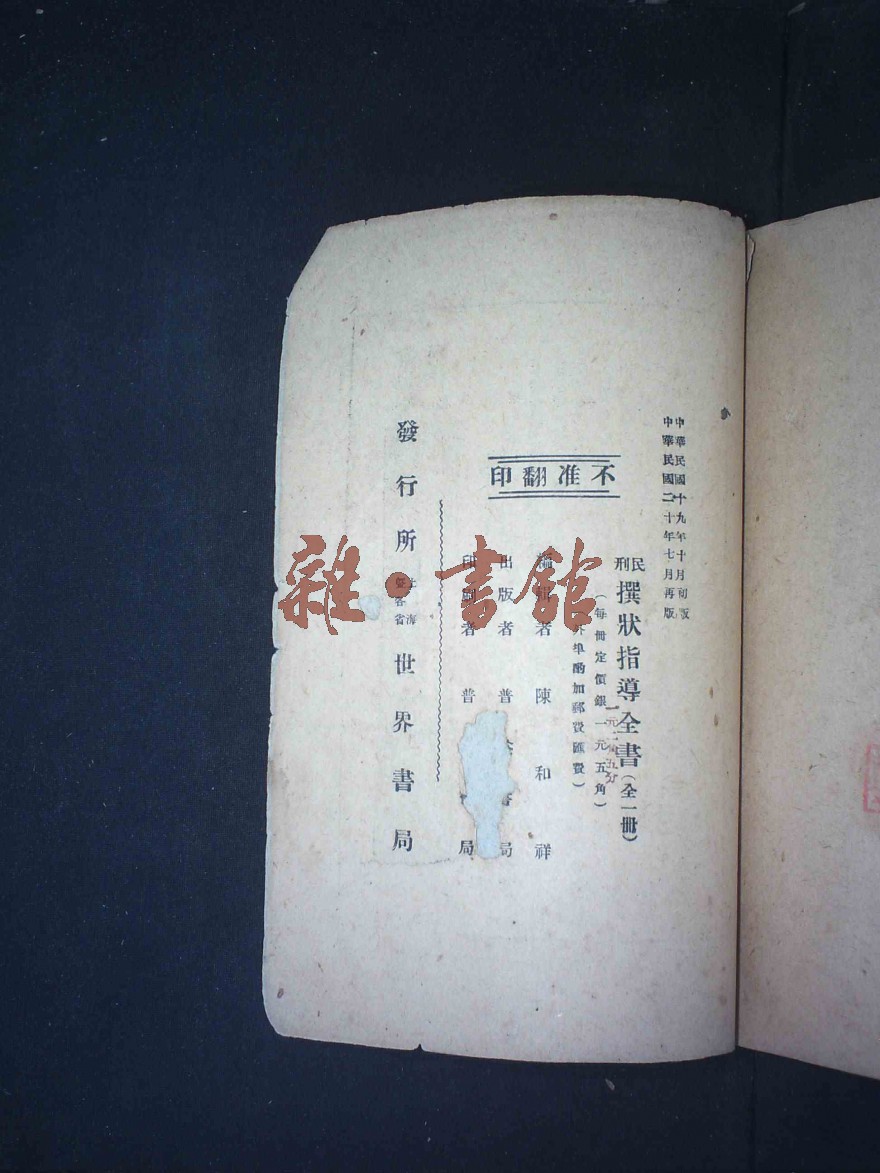 中華民國十九年十月初版
中華民國二十年七月再版
民刑撰狀指導全書(全一冊)
(每冊定價銀一元五角)
外埠酌加郵費匯費)
不准翻印
編輯者 陳和祥
出版者 普 書局
印刷者 普 局
發行所 上海 各省 世界書局
雜·書館